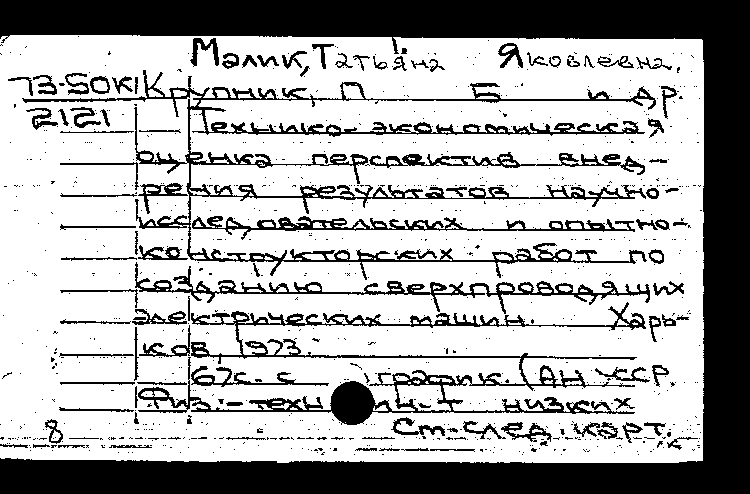 Малик, Татьяна Яковлевна.
73-50К/ Крупник, П Б и др.
2121 Технико-экономическая
оценка перспектив внед-
рения результатов научно-
исследовательских и опытно-
конструкторских работ по
созданию сверхпроводящих
электрических машин. Харь-
ков, 1973.
67с. с график. (АН УССР.
Физ.-техн ин-т низких
8 См. след. карт.